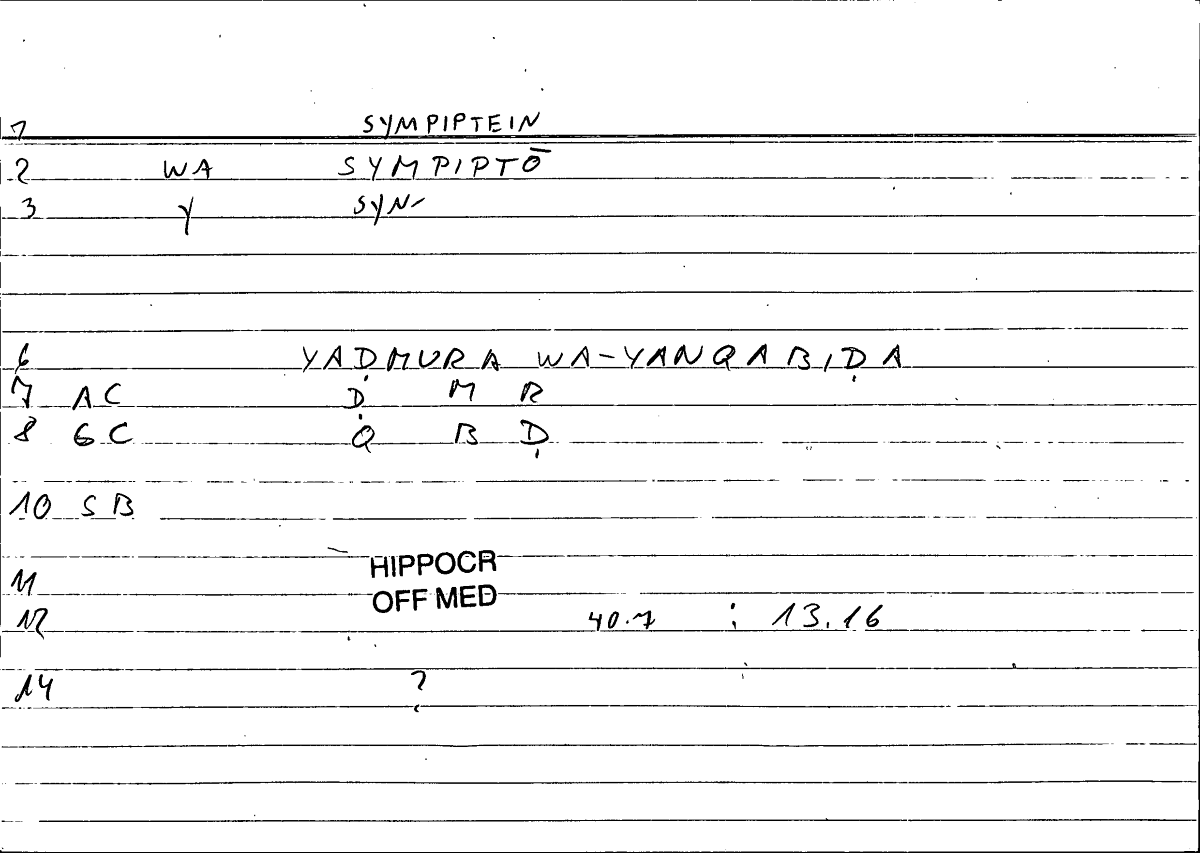 1 SYMPIPTEIN
2 WA SYMPIPTŌ
3 Y SYN-
6 YAḌMURA WA-YANQABIḌA
7 AC Ḍ M R
8 GC Q B Ḍ
10 SB
HIPPOCR
11
OFF MED
12 40.7 : 13.16
14 ?